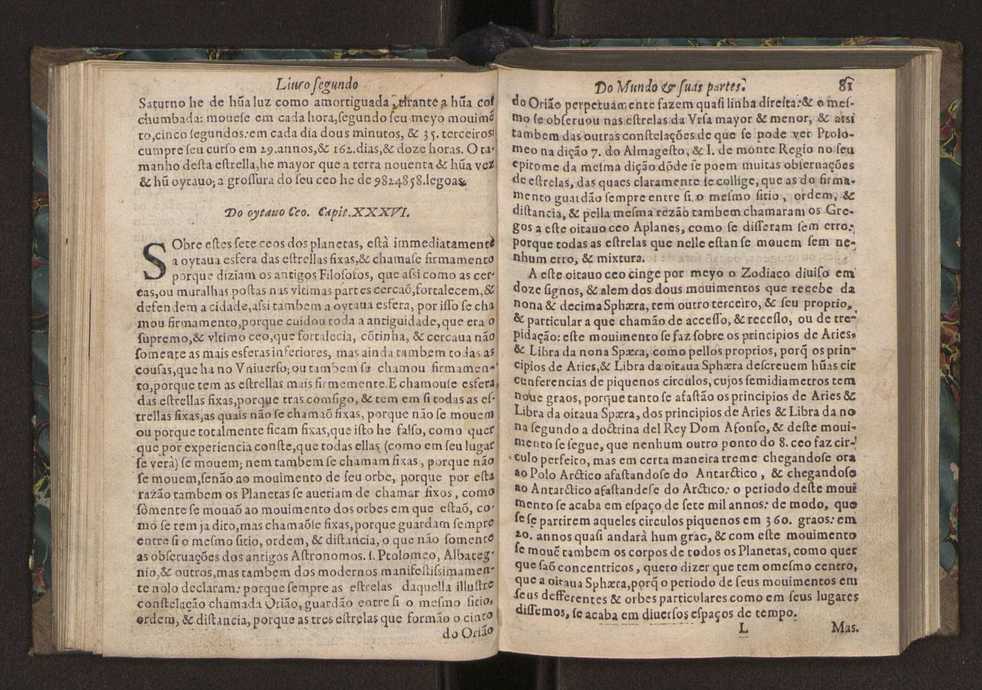 Liuro segundo
Saturno he de hũa luz como amortiguada, tirante a hũa cor
chumbada: mouese em cada hora, segundo seu meyo mouimẽ
to, cinco segundos: em cada dia dous minutos, & 35. terceiros
cumpre seu curso em 29. annos, & 162. dias, & doze horas. O ta-
manho desta estrella, he mayor que a terra nouenta & hũa vez
& hũ oytauo; a grossura do seu ceo he de 9824858. legoas.
Do oytauo Ceo. Capit. XXXVI.
SObre estes sete ceos dos planetas, està immediatamente
a oytaua esfera das estrellas fixas, & chamase firmamento
porque diziam os antigos Filosofos, que assi como as cer-
cas, ou muralhas postas nas vltimas partes cercaõ, fortalecem, &
defendem a cidade, assi tambem a oytaua esfera, por isso se cha
mou firmamento, porque cuidou toda a antiguidade, que era o
supremo, & vltimo ceo, que fortalecia, cõtinha, & cercaua não
somente as mais esferas inferiores, mas ainda tambem todas as
cousas, que ha no Vniuerso; ou tambem se chamou firmamen-
to, porque tem as estrellas mais firmemente. E chamouse esfera
das estrellas fixas, porque tras comsigo, & tem em si todas as es-
trellas fixas, as quais não se chamaõ fixas, porque não se mouem
ou porque totalmente ficam fixas, que isto he falso, como quer
que por experiencia conste, que todas ellas (como em seu lugar
se verà) se mouem; nem tambem se chamam fixas, porque não
se mouem, senão ao mouimento de seu orbe, porque por esta
razão tambem os Planetas se aueriam de chamar fixos, como
sòmente se mouaõ ao mouimento dos orbes em que estaõ, co-
mo se tem ja dito, mas chamaõse fixas, porque guardam sempre
entre si o mesmo sitio, ordem, & distancia, o que não somente
as obseruações dos antigos Astronomos. s. Ptolomeo, Albateg-
nio, & outros, mas tambem dos modernos manifestissimamen-
te nolo declaram: porque sempre as estrelas daquella illustre
constelação chamada Orião, guardão entre si o mesmo sitio,
ordem, & distancia, porque as tres estrelas que formão o cinto
do Orião
Do Mundo & suas partes. 81
do Orião perpetuamente fazem quasi linha direita: & o mes-
mo se obseruou nas estrelas da Vrsa mayor & menor, & assi
tambem das outras constelações de que se pode ver Ptolo-
meo na dição 7. do Almagesto, & I. de monte Regio no seu
epitome da mesma dição dõde se poem muitas obseruações
de estrelas, das quaes claramente se collige, que as do firma-
mento guardão sempre entre si o mesmo sitio, ordem, &
distancia, & pella mesma rezão tambem chamaram os Gre-
gos a este oitauo ceo Aplanes, como se disseram sem erro:
porque todas as estrelas que nelle estan se mouem sem ne-
nhum erro, & mixtura.
A este oitauo ceo cinge por meyo o Zodiaco diuiso em
doze signos, & alem dos dous mouimentos que recebe da
nona & decima Sphæra, tem outro terceiro, & seu proprio,
& particular a que chamão de accesso, & recesso, ou de tre-
pidação: este mouimento se faz sobre os principios de Aries,
& Libra da nona Spæra, como pellos proprios, porq̃ os prin-
cipios de Aries, & Libra da oitaua Sphæra descreuem hũas cir
cunferencias de piquenos circulos, cujos semidiametros tem
noue graos, porque tanto se afastão os principios de Aries &
Libra da oitaua Spæra, dos principios de Aries & Libra da no
na segundo a doctrina del Rey Dom Afonso, & deste moui-
mento se segue, que nenhum outro ponto do 8. ceo faz cir-
culo perfeito, mas em certa maneira treme chegandose ora
ao Polo Arctico afastandose do Antarctico, & chegandose
ao Antarctico afastandese do Arctico: o periodo deste moui
mento se acaba em espaço de sete mil annos: de modo, que
se se partirem aqueles circulos piquenos em 360. graos: em
20. annos quasi andarà hum grao, & com este mouimento
se mouẽ tambem os corpos de todos os Planetas, como quer
que saõ concentricos, quero dizer que tem o mesmo centro,
que a oitaua Sphæra, porq̃ o periodo de seus mouimentos em
seus defferentes & orbes particulares como em seus lugares
dissemos, se acaba em diuersos espaços de tempo.
L Mas.